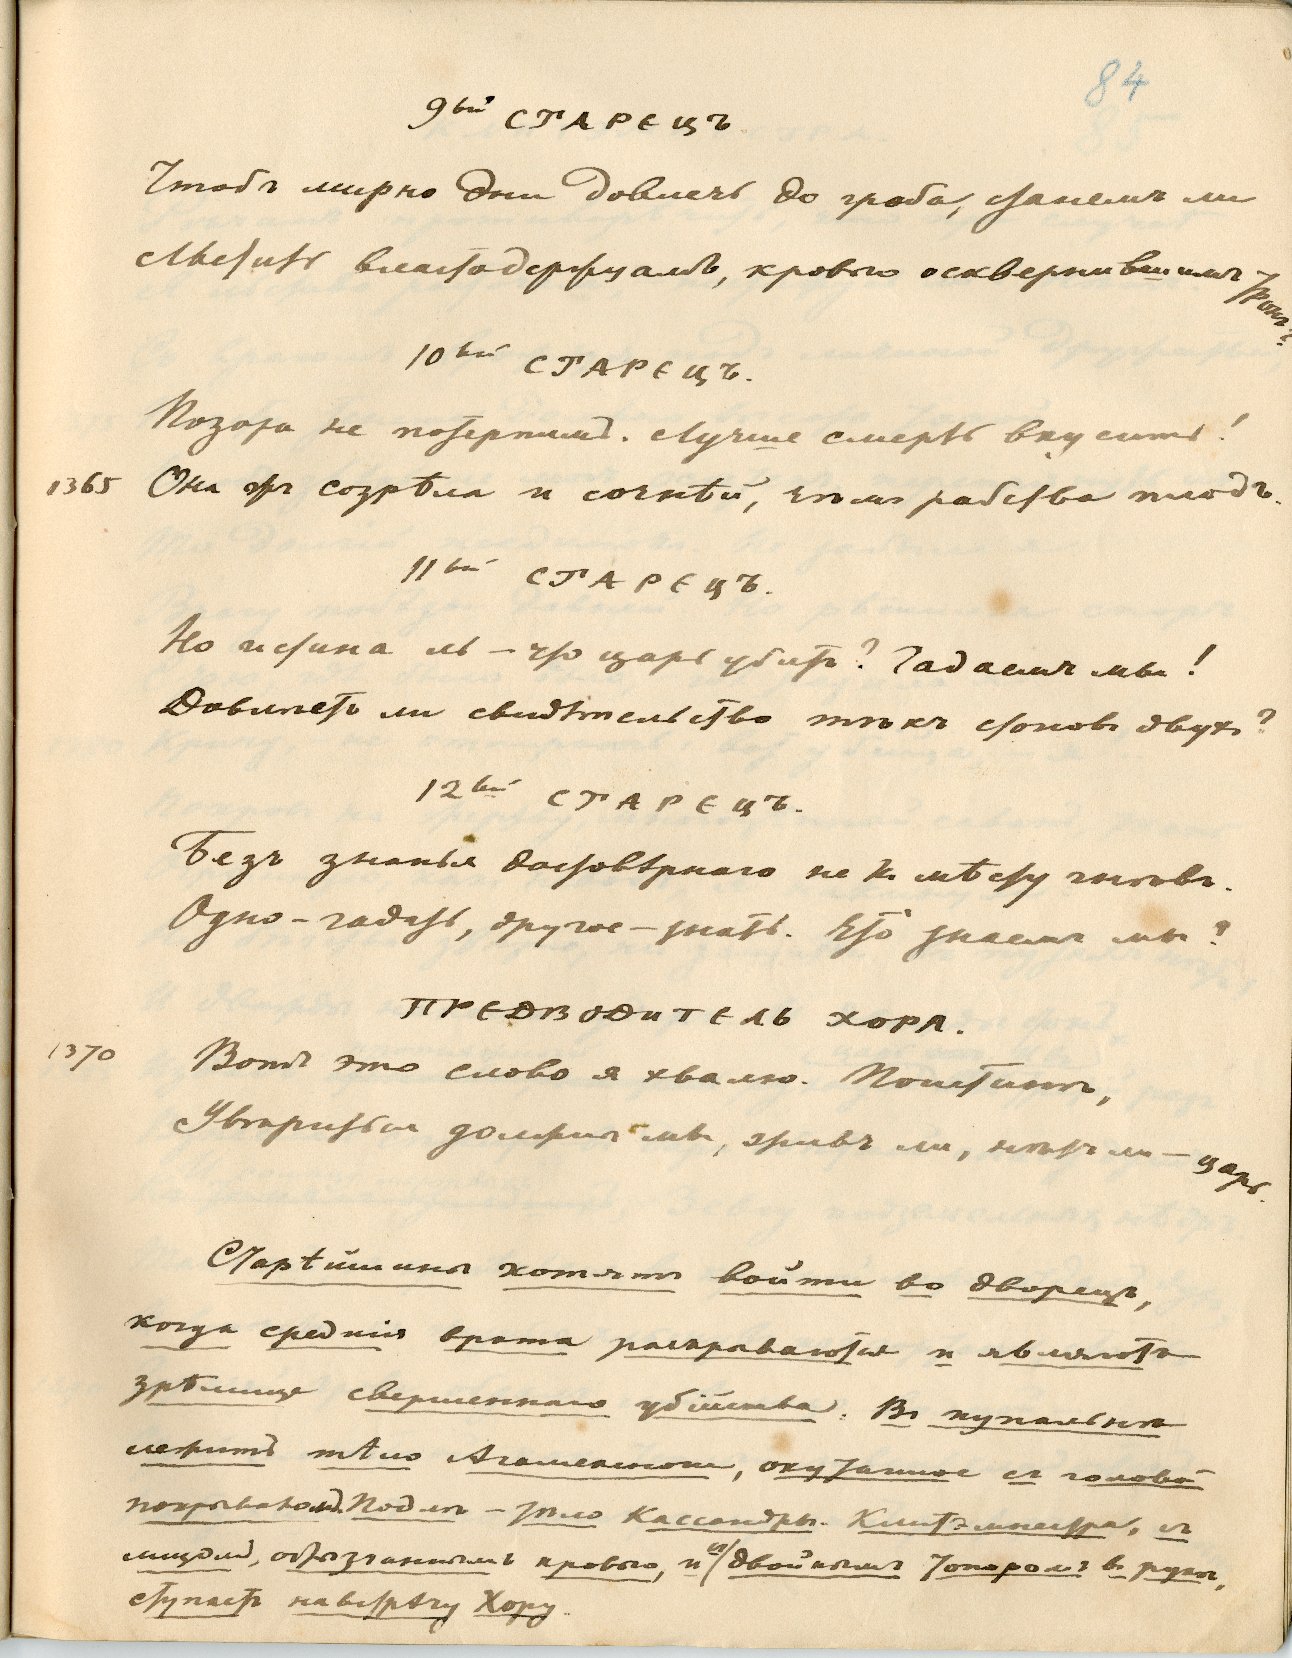 84
9ый СТАРЕЦЪ
Чтобъ мирно дни довлечь до гроба, станемъ ли
Льстить властодержцамъ, кровью осквернившимъ тронъ?
10ый СТАРЕЦЪ.
Позора не потерпимъ. Лучше смерть вкусить!
1365 Она жъ созрѣла и сочнѣй, чѣмъ рабства плодъ.
11ый СТАРЕЦЪ.
Но истина ль – что царь убитъ? Гадаемъ мы!
Довлѣетъ ли свидѣтельство тѣхъ стоновъ двухъ?
12ый СТАРЕЦЪ.
Безъ знанья достовѣрнаго не къ мѣсту гнѣвъ.
Одно – гадать, другое – знать. Что знаемъ мы?
ПРЕДВОДИТЕЛЬ ХОРА.
1370 Вотъ это слово я хвалю. Поистинѣ,
Увѣриться должны мы, живъ ли, нѣтъ ли – царь.
Старѣйшины хотятъ войти во дворецъ,
когда среднія врата раскрываются и являютъ
зрѣлище свершеннаго убійства. Въ купальнѣ
лежитъ тѣло Агамемнона, окутанное съ головой
покрываломъ. Подлѣ – тѣло Кассандры. Клитэмнестра, съ
лицомъ, обрызганнымъ кровью, и съ двойнымъ топоромъ въ рукѣ,
ступаетъ навстрѣчу Хору.